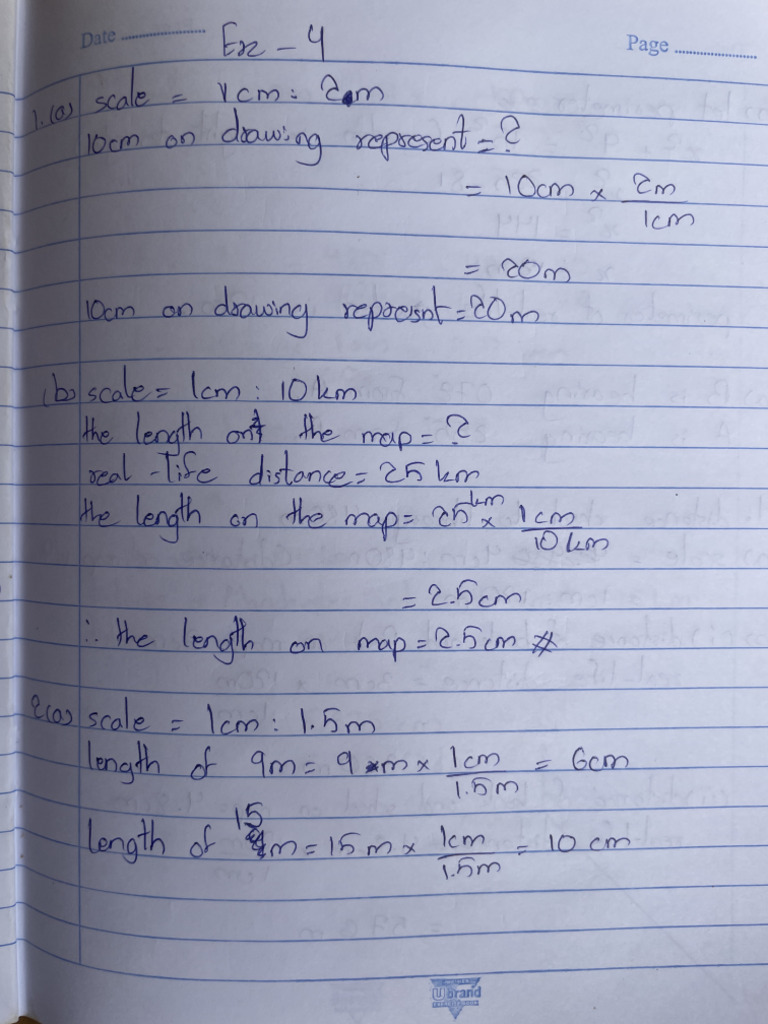 Date ............ Ex - 4 Page ............
1.(a) scale = 1cm : 2m
10cm on drawing represent = ?
= 10cm × 2m/1cm
= 20m
10cm on drawing represnt = 20m
(b) scale = 1cm : 10km
the length on the map = ?
real-life distance = 25km
the length on the map = 25km × 1cm/10km
= 2.5cm
∴ the length on map = 2.5cm #
2(a) scale = 1cm : 1.5m
length of 9m = 9m × 1cm/1.5m = 6cm
length of 15m = 15m × 1cm/1.5m = 10 cm
U brand